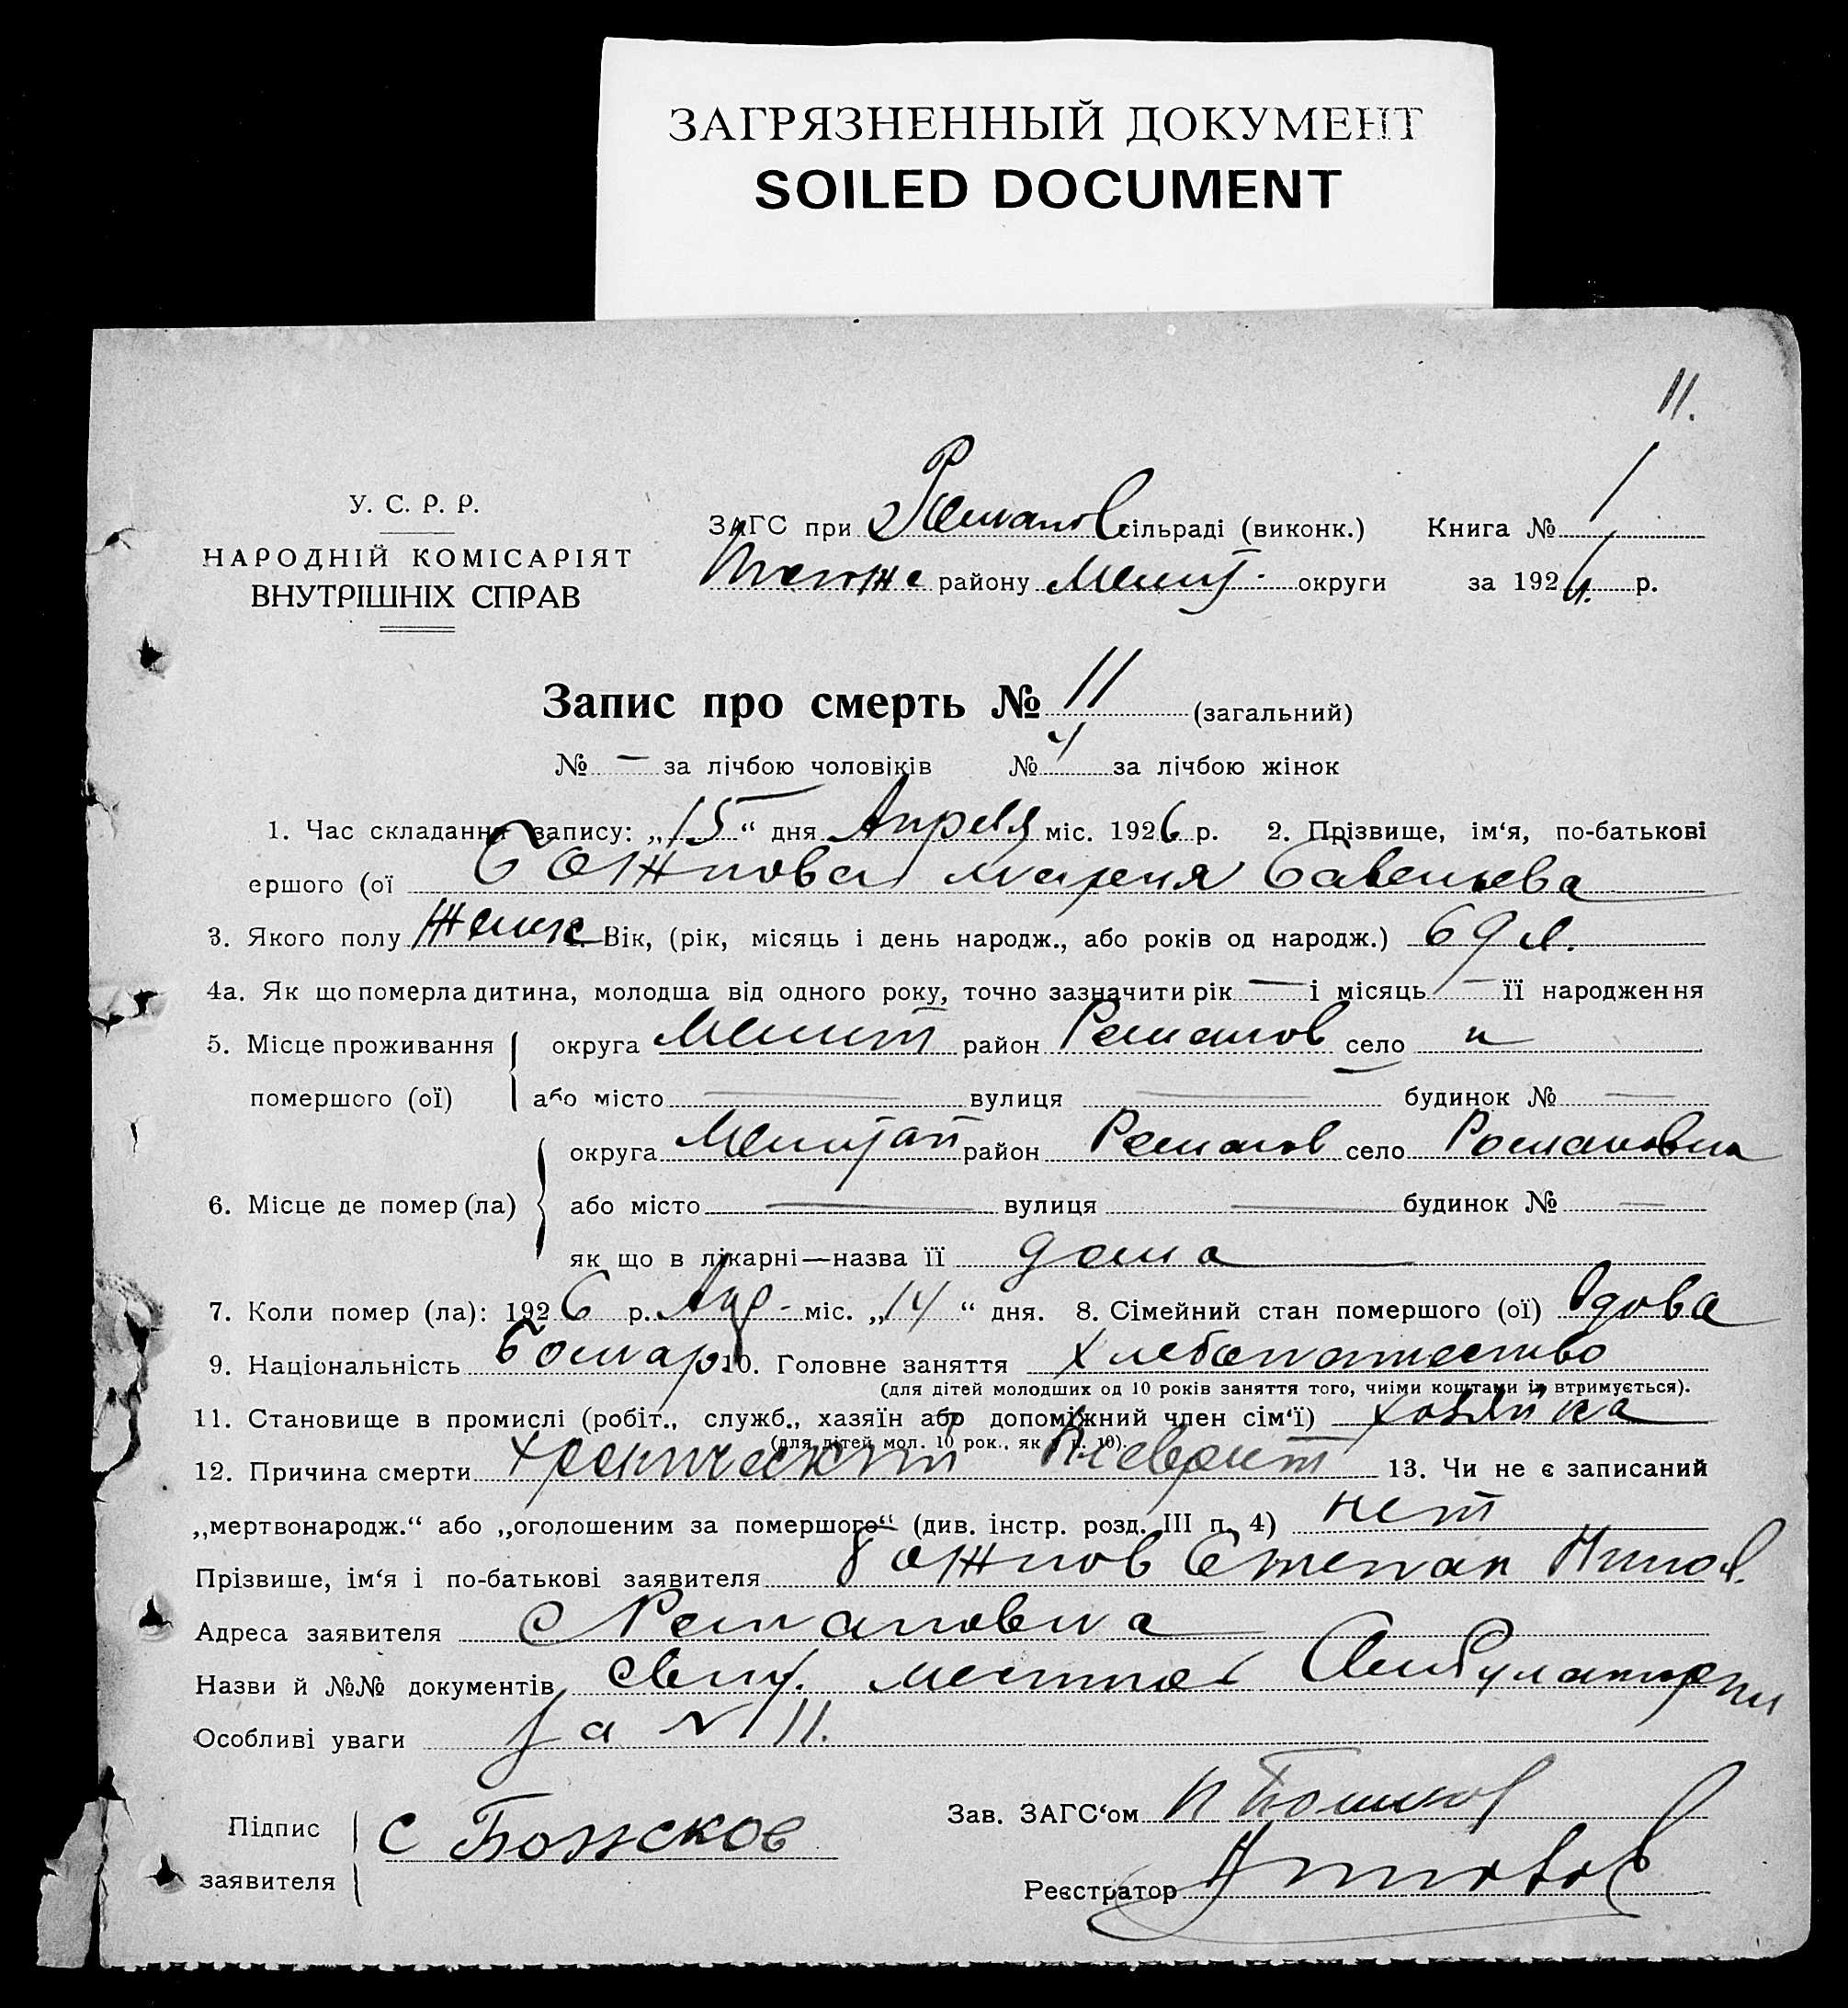 ЗАГРЯЗНЕННЫЙ ДОКУМЕНТ
SOILED DOCUMENT
11.
У. С. Р. Р.
НАРОДНІЙ КОМІСАРІЯТ
ВНУТРІШНІХ СПРАВ
ЗАГС при Романов сільраді (виконк.) Книга № 1
району Мелит. округи за 192 р.
Запис про смерть № 11 (загальний)
№ — за лічбою чоловіків № 4 за лічбою жінок
1. Час складання запису: „15“ дня Апреля міс. 1926 р. 2. Прізвище, ім‘я, по-батькові
ершого (ої Мария Савельева
3. Якого полу Женск Вік, (рік, місяць і день народж., або років од народж.) 69 л.
4а. Як що померла дитина, молодша від одного року, точно зазначити рік — і місяць — її народження
5. Місце проживання округа Мелит район Романов село
помершого (ої) або місто — вулиця — будинок № —
округа Мелитоп район Романов село Романовка
6. Місце де помер (ла) або місто — вулиця — будинок № —
як що в лікарні—назва її дома
7. Коли помер (ла): 1926 р. Апр- міс. „14“ дня. 8. Сімейний стан помершого (ої) вдова
9. Національність Болгар 10. Головне заняття Хлебопашество
(для дітей молодших од 10 років заняття того, чиїми коштами їх втримується).
11. Становище в промислі (робіт., служб., хазяїн або допоміжний член сім‘ї) хозяйка
(для дітей мол. 10 рок., як у п. 10).
12. Причина смерти Хронический Плеврит 13. Чи не є записаний
„мертвонародж.“ або „оголошеним за помершого“ (див. інстр. розд. III п. 4) нет
Прізвише, ім‘я і по-батькові заявителя Степан
Адреса заявителя с Романовка
Назви й №№ документів местной Амбулатории
Особливі уваги за № 11.
Підпис
заявителя
Зав. ЗАГС‘ом
Реєстратор